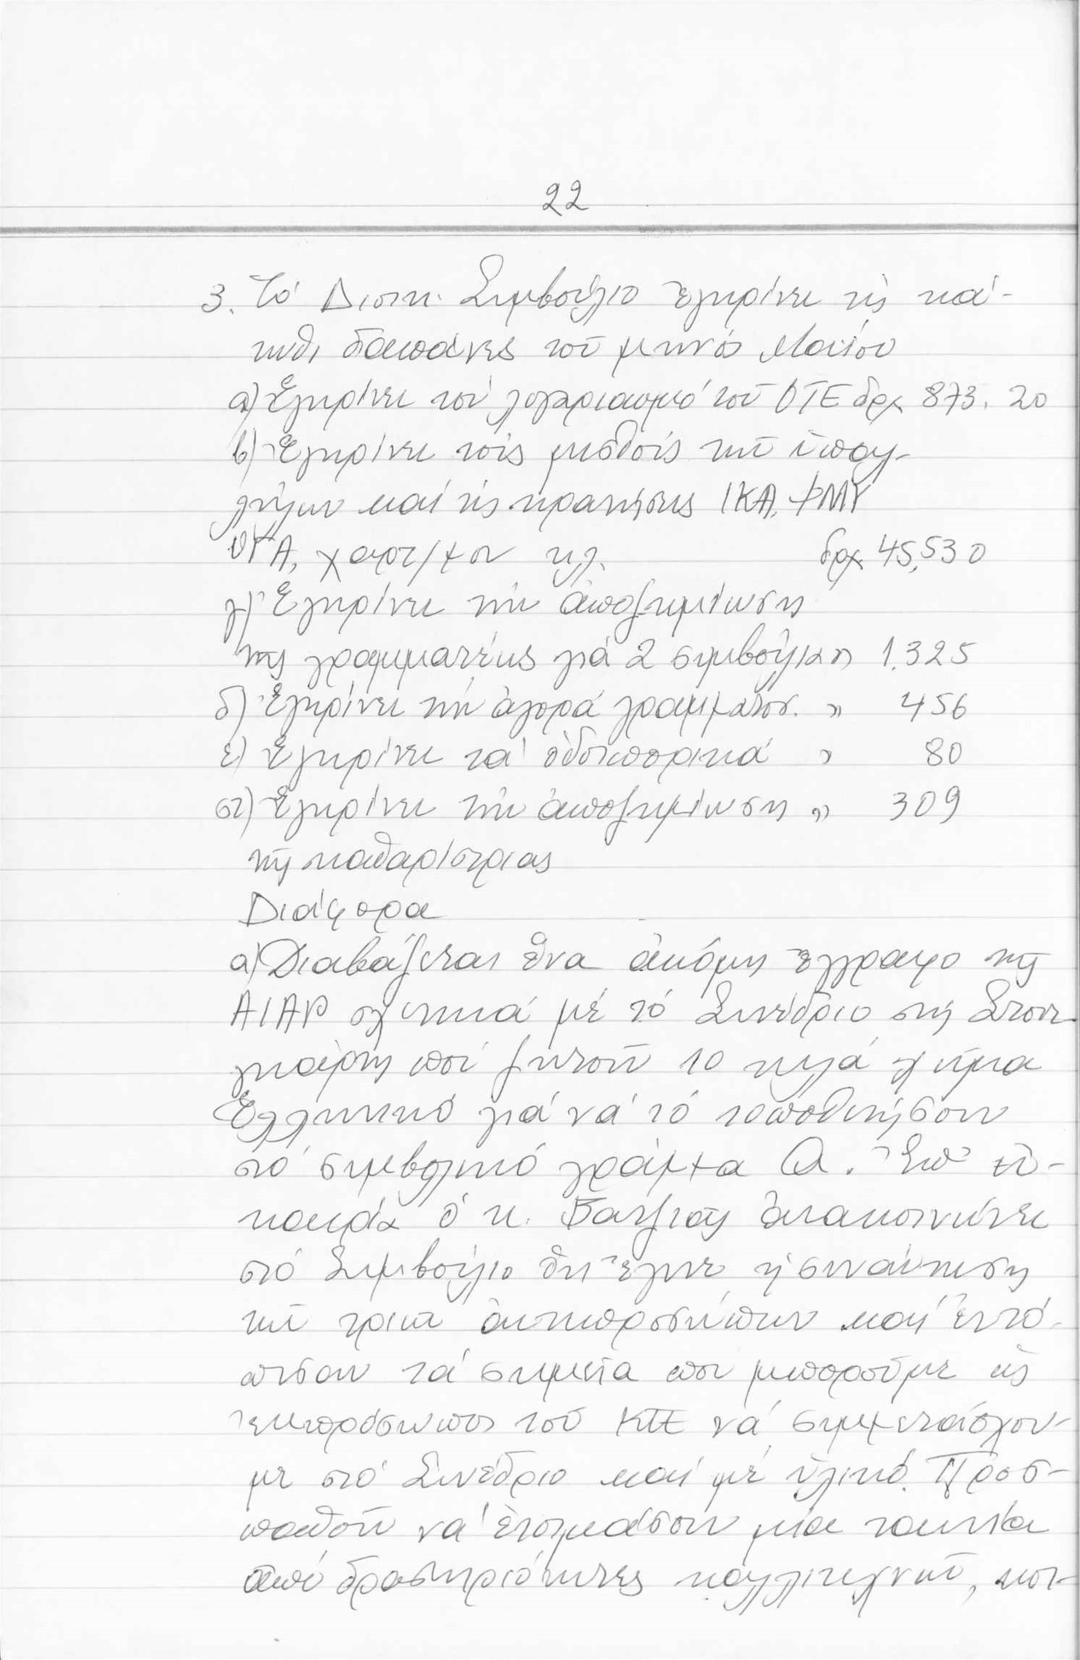 22
3. Τό Διοικ. Συμβούλιο ἐγκρίνει τίς κά-
τωθι δαπάνες τοῦ μηνός Μαΐου
α) Ἐγκρίνει τόν λογαριασμό τοῦ ΟΤΕ δρχ 873.20
β) Ἐγκρίνει τούς μισθούς τῶν ὑπαλ-
λήλων καί τίς κρατήσεις ΙΚΑ, ΦΜΥ
ΟΓΑ, χαρτ/μον κλ. δρχ 45,530
γ) Ἐγκρίνει τήν ἀποζημίωση
τῆς γραμματέως γιά 2 συμβούλια " 1.325
δ) Ἐγκρίνει τήν ἀγορά γραμματοσ. " 456
ε) Ἐγκρίνει τά ὁδοιπορικά " 80
στ) Ἐγκρίνει τήν ἀποζημίωση " 309
τῆς καθαρίστριας
Διάφορα
α) Διαβάζεται ἕνα ἀκόμη ἔγγραφο τῆς
AIAP σχετικά μέ τό Συνέδριο στή Στουτ
γκάρτη πού ζητοῦν 10 κιλά χῶμα
Ἑλληνικό γιά νά τό τοποθετήσουν
στό συμβολικό γράμμα Α. Ἐπ' εὐ-
καιρία ὁ κ. ἀνακοινώνει
στό Συμβούλιο ὅτι ἔγινε ἡ συνάντηση
τῶν τριῶν ἀντιπροσώπων καί ἐντό-
πισαν τά σημεῖα πού μποροῦμε ὡς
ἐκπρόσωποι τοῦ ΚΤΕ νά συμμετάσχου-
με στό Συνέδριο καί μέ ὑλικό. Προσ-
παθοῦν νά ἑτοιμάσουν μία ταινία
ἀπό δραστηριότητες καλλιτεχνῶν, και-